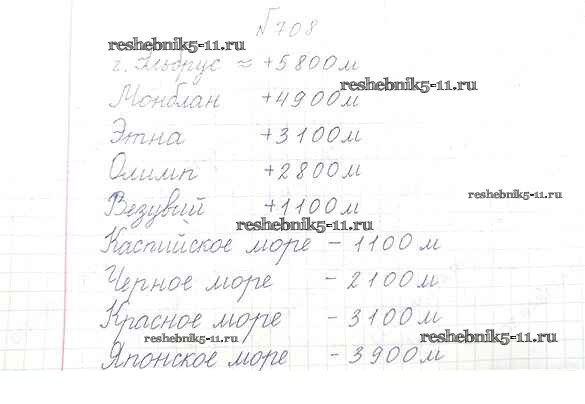 №708
reshebnik5-11.ru
г. Эльбрус ≈ +5800м
reshebnik5-11.ru
Монблан +4900м
Этна +3100м
Олимп +2800м
reshebnik5-11.ru
Везувий +1100м
reshebnik5-11.ru
Каспийское море - 1100м
Черное море - 2100м
Красное море - 3100м
reshebnik5-11.ru
reshebnik5-11.ru
Японское море - 3900м